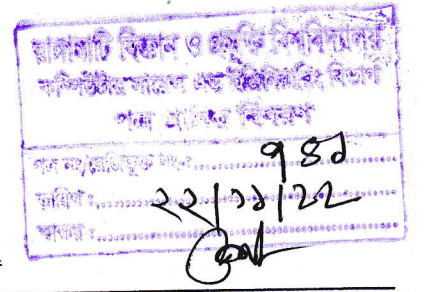 রাঙ্গামাটি বিজ্ঞান ও প্রযুক্তি বিশ্ববিদ্যালয়
কম্পিউটার সায়েন্স এন্ড ইঞ্জিনিয়ারিং বিভাগ
পত্র প্রাপ্তির বিবরণ
পত্র নং/রেজিভুক্ত নং:
তারিখ: ২২/১১/২২
স্বাক্ষর: